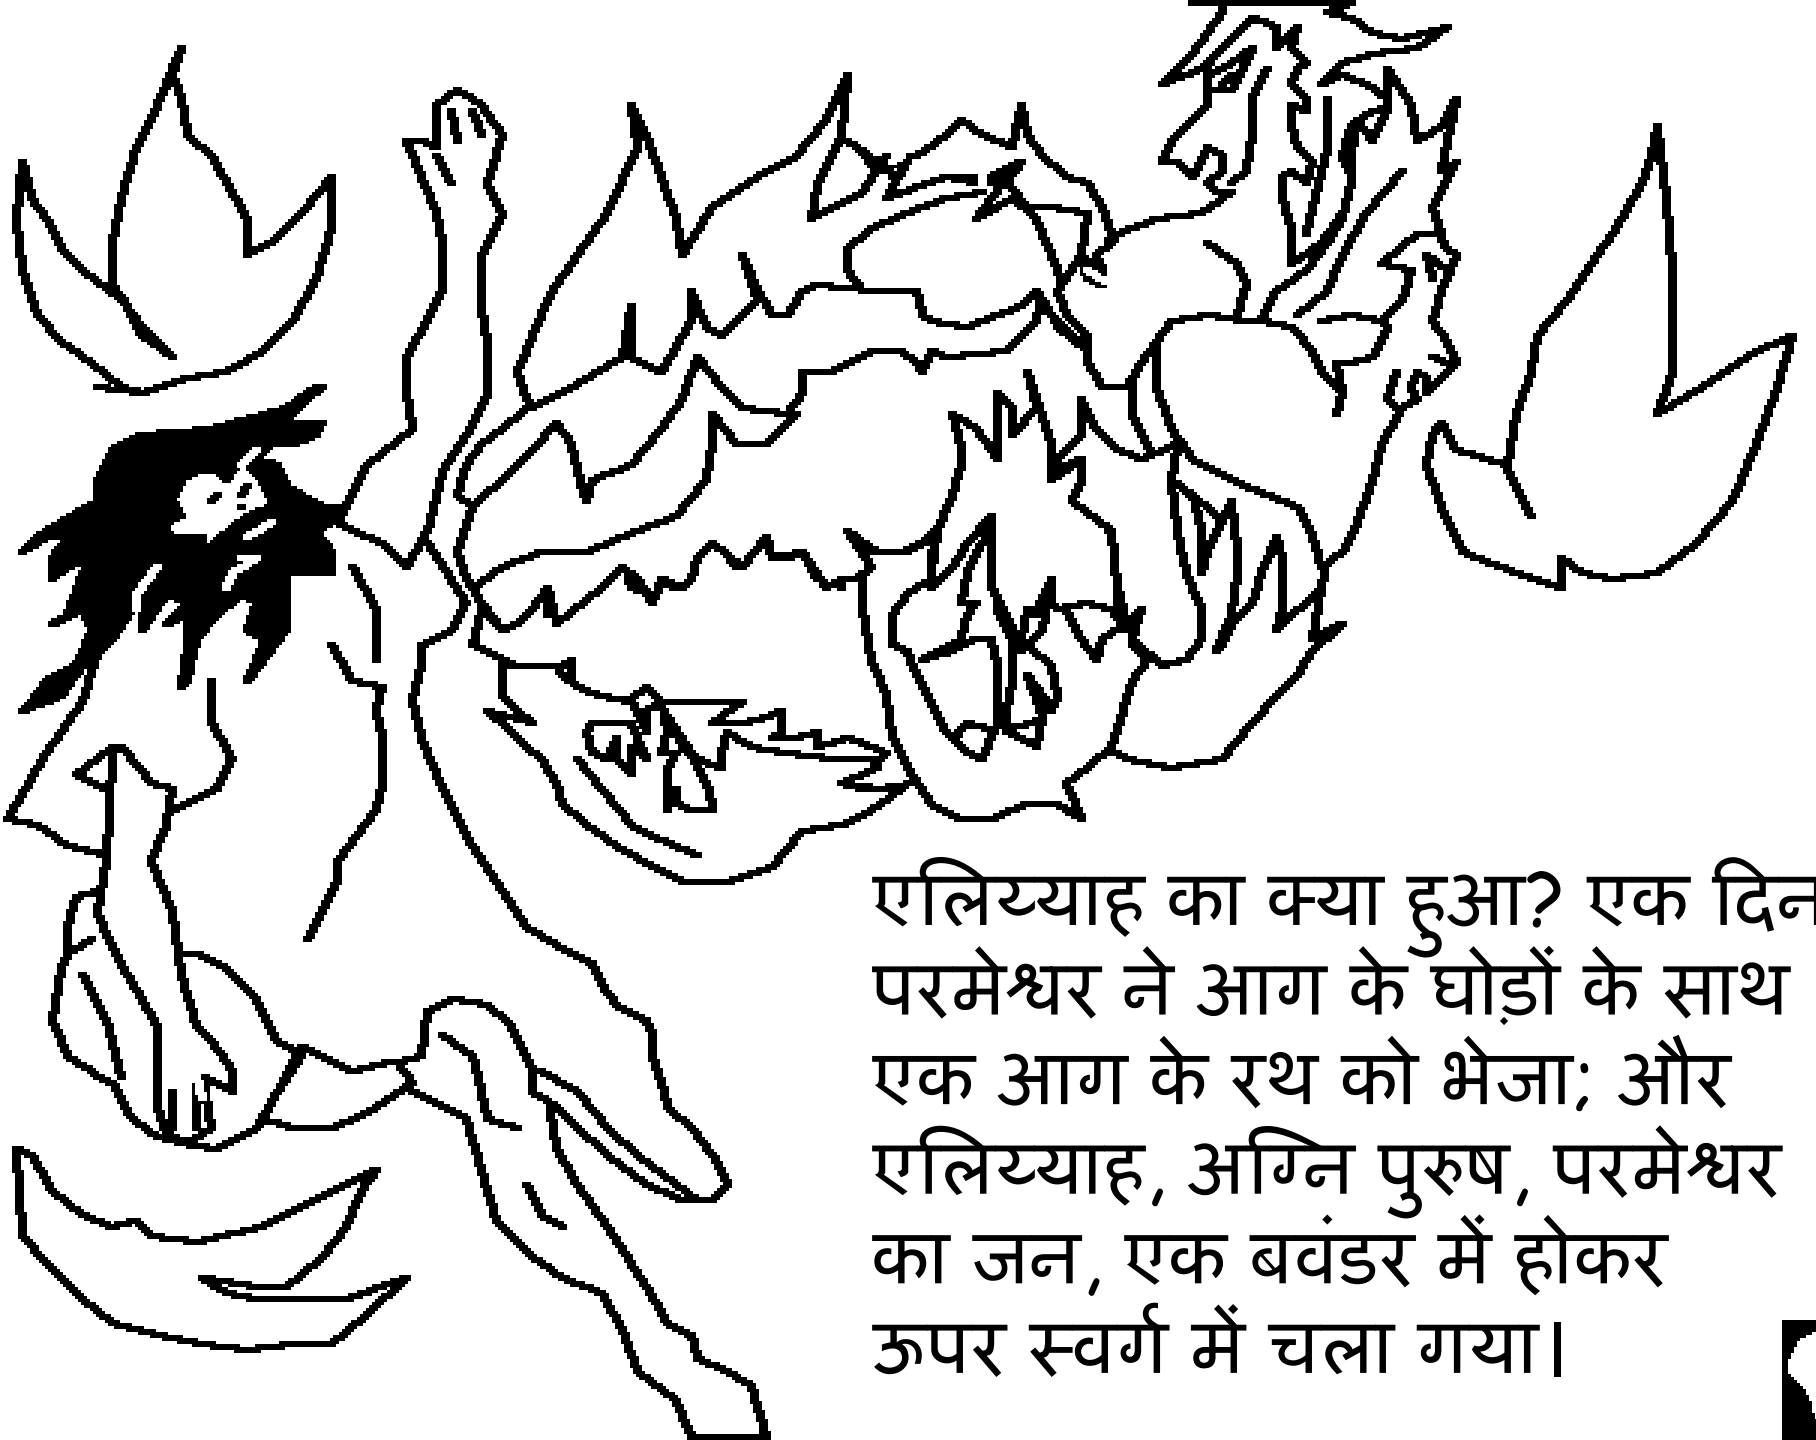 एलिय्याह का क्या हुआ? एक दिन
परमेश्वर ने आग के घोड़ों के साथ
एक आग के रथ को भेजा; और
एलिय्याह, अग्नि पुरुष, परमेश्वर
का जन, एक बवंडर में होकर
ऊपर स्वर्ग में चला गया।